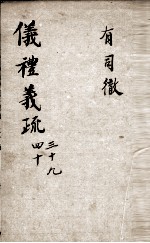 有司徹
儀禮義疏
三十九
四十